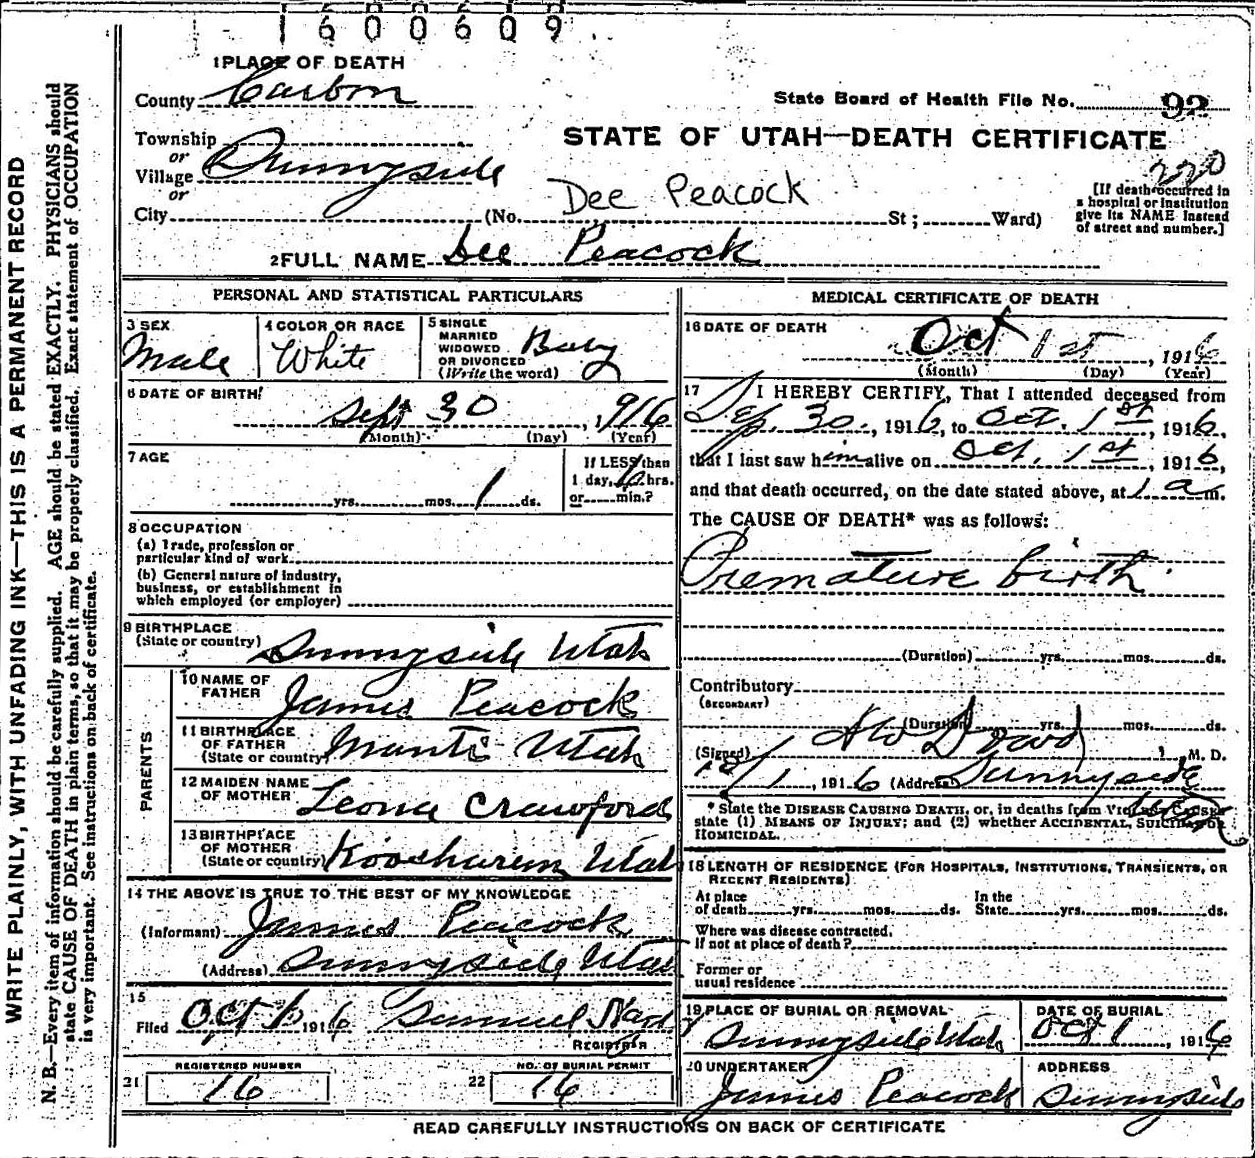 1600609
1 PLACE OF DEATH
County Carbon
State Board of Health File No. 92
Township
or
Village Sunnyside
or
City (No. St; Ward)
STATE OF UTAH—DEATH CERTIFICATE
220
Dee Peacock
[If death occurred in
a hospital or institution
give its NAME instead
of street and number.]
2 FULL NAME Dee Peacock
PERSONAL AND STATISTICAL PARTICULARS
3 SEX
Male
4 COLOR OR RACE
White
5 SINGLE
MARRIED
WIDOWED
OR DIVORCED
(Write the word)
Baby
6 DATE OF BIRTH
Sept 30, 1916
(Month) (Day) (Year)
7 AGE
yrs. mos. 1 ds.
If LESS than
1 day, hrs.
or min.?
8 OCCUPATION
(a) Trade, profession or
particular kind of work
(b) General nature of industry,
business, or establishment in
which employed (or employer)
9 BIRTHPLACE
(State or country)
Sunnyside Utah
PARENTS
10 NAME OF
FATHER
James Peacock
11 BIRTHPLACE
OF FATHER
(State or country)
Manti Utah
12 MAIDEN NAME
OF MOTHER
Leona Crawford
13 BIRTHPLACE
OF MOTHER
(State or country)
Koosharem Utah
14 THE ABOVE IS TRUE TO THE BEST OF MY KNOWLEDGE
(Informant) James Peacock
(Address) Sunnyside Utah
15
Filed Oct 1916 Samuel
REGISTRAR
REGISTERED NUMBER
21 16
NO. OF BURIAL PERMIT
22 16
MEDICAL CERTIFICATE OF DEATH
16 DATE OF DEATH
Oct 1st, 1916
(Month) (Day) (Year)
17 I HEREBY CERTIFY, That I attended deceased from
Sep. 30, 1916, to Oct. 1st, 1916,
that I last saw him alive on Oct. 1st, 1916,
and that death occurred, on the date stated above, at 1 a m.
The CAUSE OF DEATH* was as follows:
Premature birth.
(Duration) yrs. mos. ds.
Contributory
(SECONDARY)
(Duration) yrs. mos. ds.
(Signed) M. D.
1916 (Address) Sunnyside
Utah
* State the DISEASE CAUSING DEATH, or, in deaths from VIOLENT CAUSES
state (1) MEANS OF INJURY; and (2) whether ACCIDENTAL, SUICIDAL OR
HOMICIDAL.
18 LENGTH OF RESIDENCE (FOR HOSPITALS, INSTITUTIONS, TRANSIENTS, OR
RECENT RESIDENTS)
At place
of death yrs. mos. ds.
In the
State yrs. mos. ds.
Where was disease contracted,
If not at place of death?
Former or
usual residence
19 PLACE OF BURIAL OR REMOVAL
Sunnyside Utah
DATE OF BURIAL
Oct 1, 1916
20 UNDERTAKER
James Peacock
ADDRESS
Sunnyside
READ CAREFULLY INSTRUCTIONS ON BACK OF CERTIFICATE
WRITE PLAINLY, WITH UNFADING INK—THIS IS A PERMANENT RECORD
N. B.—Every item of information should be carefully supplied. AGE should be stated EXACTLY. PHYSICIANS should
state CAUSE OF DEATH in plain terms, so that it may be properly classified. Exact statement of OCCUPATION
is very important. See instructions on back of certificate.